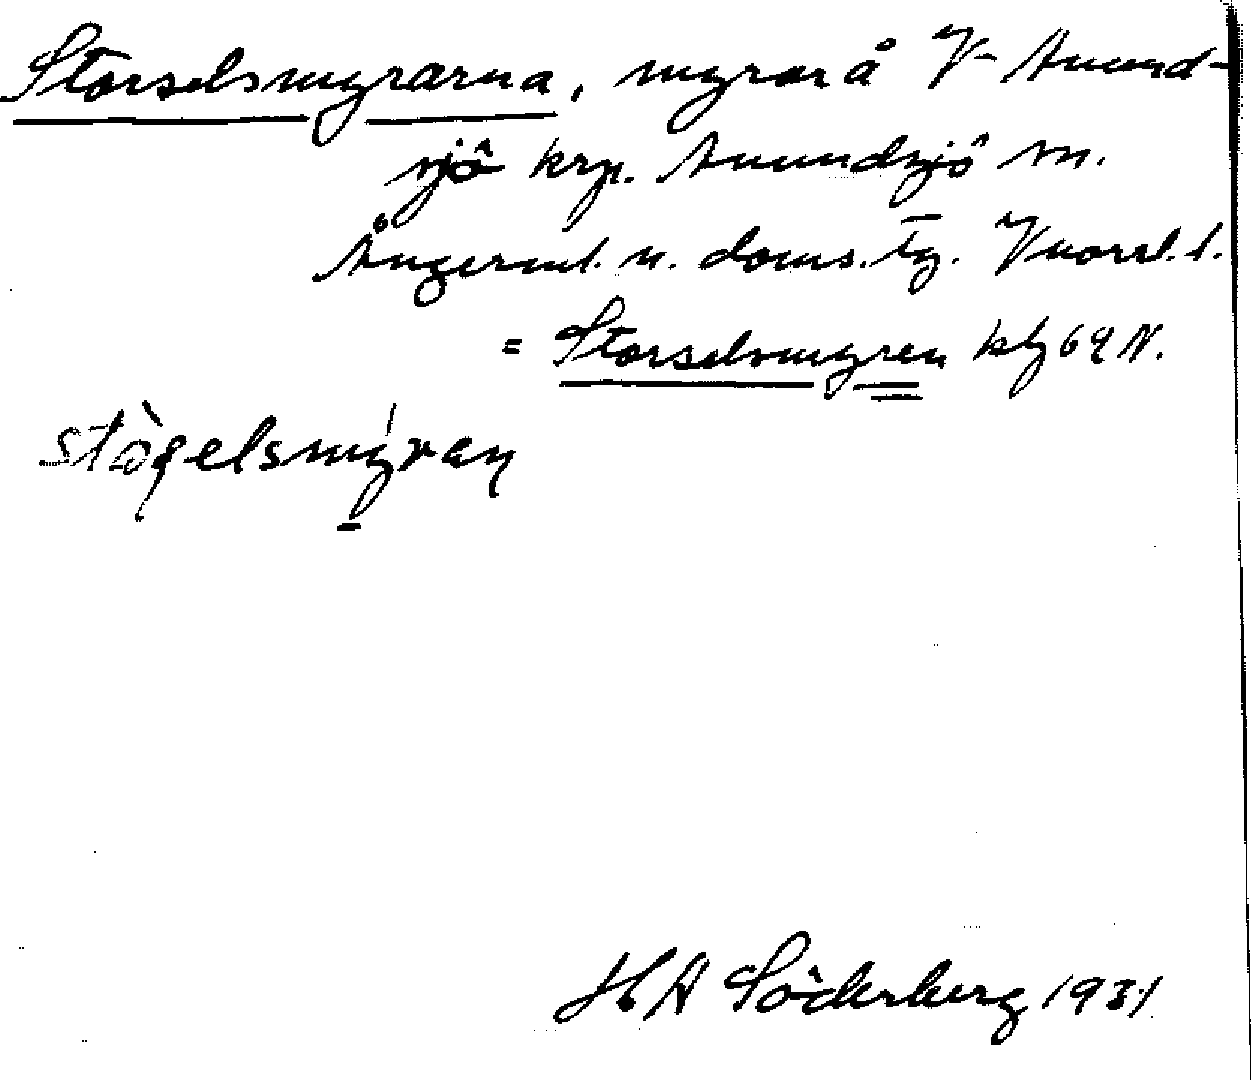 Storselsmyrarna, myrar å V. Anund-
sjö krp. Anundsjö sn.
Ångerml. n. doms. tg. Vnorrl. l.
= Storselsmyren kbl 69 N.
H A Söderberg 1931